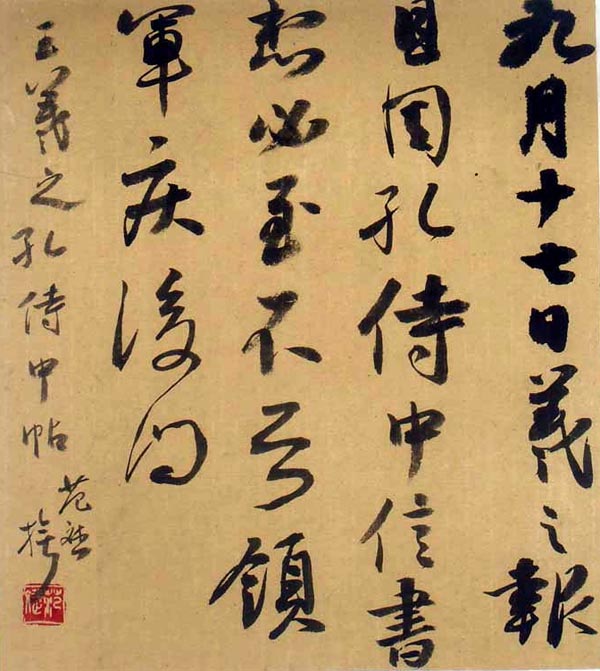 九月十七日羲之報
且因孔侍中信書
想必至不知領
軍疾後問
王羲之孔侍中帖
范